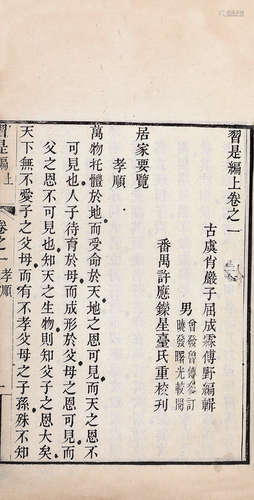 習是編上卷之一
古虞肖巖子屈成霖傅野編輯
男
曾發魯傳參訂
曉發曙光較閱
番禺許應鑅星臺氏重校刊
居家要覽
孝順
萬物托體於地而受命於天地之恩可見而天之恩不
可見也人子待育於母而成形於父母之恩可見而
父之恩不可見也知天之生物則知父子之恩大矣
天下無不愛子之父母而有不孝父母之子孫殊不知
習是編上
卷之一
孝順
一